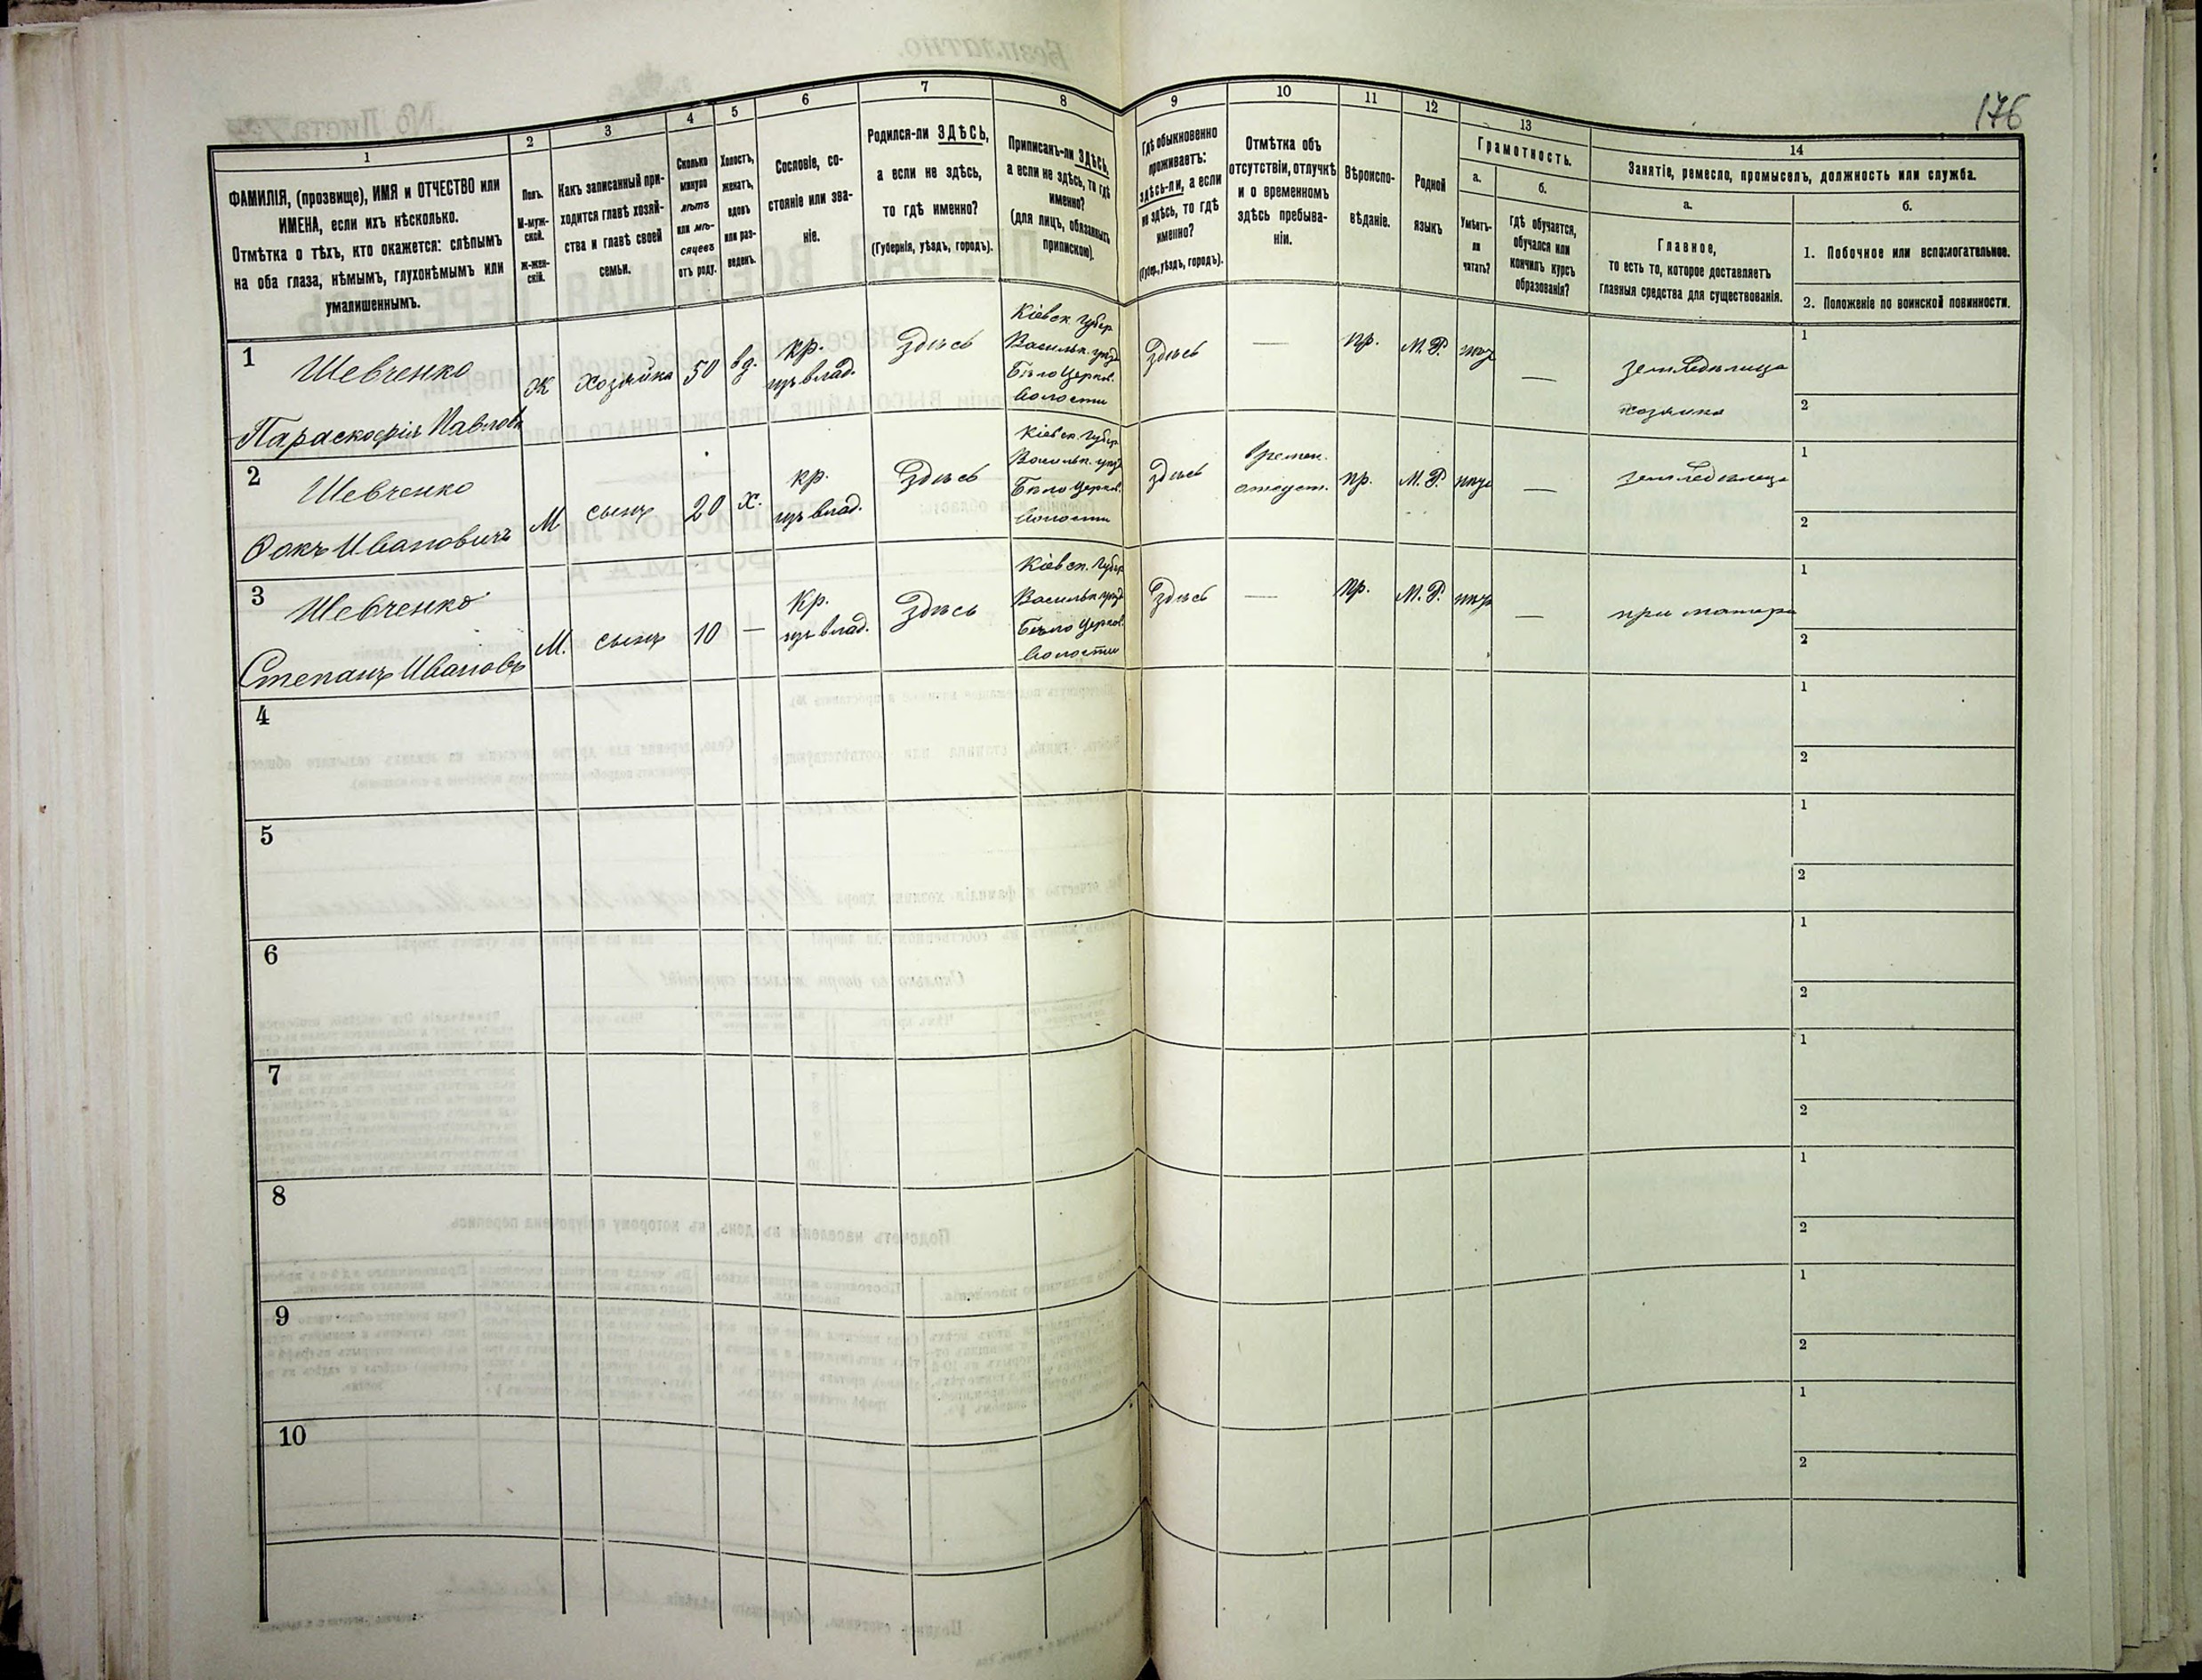 176
1
ФАМИЛІЯ, (прозвище), ИМЯ и ОТЧЕСТВО или
ИМЕНА, если ихъ нѣсколько.
Отмѣтка о тѣхъ, кто окажется: слѣпымъ
на оба глаза, нѣмымъ, глухонѣмымъ или
умалишеннымъ.
2
Полъ.
М-муж-
ской.
Ж-жен-
скій.
3
Какъ записанный при-
ходится главѣ хозяй-
ства и главѣ своей
семьи.
4
Сколько
минуло
лѣтъ
или мѣ-
сяцевъ
отъ роду.
5
Холостъ,
женатъ,
вдовъ
или раз-
веденъ.
6
Сословіе, со-
стояніе или зва-
ніе.
7
Родился-ли ЗДѢСЬ,
а если не здѣсь,
то гдѣ именно?
(Губернія, уѣздъ, городъ).
8
Приписанъ-ли ЗДѢСЬ,
а если не здѣсь, то гдѣ
именно?
(для лицъ, обязанныхъ
припискою).
9
Гдѣ обыкновенно
проживаетъ:
здѣсь-ли, а если
не здѣсь, то гдѣ
именно?
(Губер., уѣздъ, городъ).
10
Отмѣтка объ
отсутствіи, отлучкѣ
и о временномъ
здѣсь пребыва-
ніи.
11
Вѣроиспо-
вѣданіе.
12
Родной
языкъ
13
Грамотность.
а.
Умѣетъ-
ли
читать?
б.
гдѣ обучается,
обучался или
кончилъ курсъ
образованія?
14
Занятіе, ремесло, промыселъ, должность или служба.
а.
Главное,
то есть то, которое доставляетъ
главныя средства для существованія.
б.
1. Побочное или вспомогательное.
2. Положеніе по воинской повинности.
1
Шевченко
Параскофія Павлов
Ж
хозяйка
50
вд.
кр.
изъ влад.
Здѣсь
Кіевск. Губер.
Васильк. уѣзд
Бѣло Церков.
Волости
здѣсь
—
пр.
М. Р.
—
земледѣлица
хозяйка
1
2
2
Шевченко
Фокъ Ивановичъ
М
сынъ
20
х.
кр.
изъ влад.
Здѣсь
Кіевск. Губер
Васильк. уѣзд
Бѣло Церков.
Волости
здѣсь
Времен.
отсуст.
пр.
М. Р.
—
1
2
3
Шевченко
Степанъ Ивановъ
М.
сынъ
10
—
Кр.
изъ влад.
Здѣсь
Кіевск. Губер
Васильк уѣзд
Бѣло Церков.
Волости
здѣсь
—
пр.
М. Р.
—
при матери
1
2
4
1
2
5
1
2
6
1
2
7
1
2
8
1
2
9
1
2
10
1
2